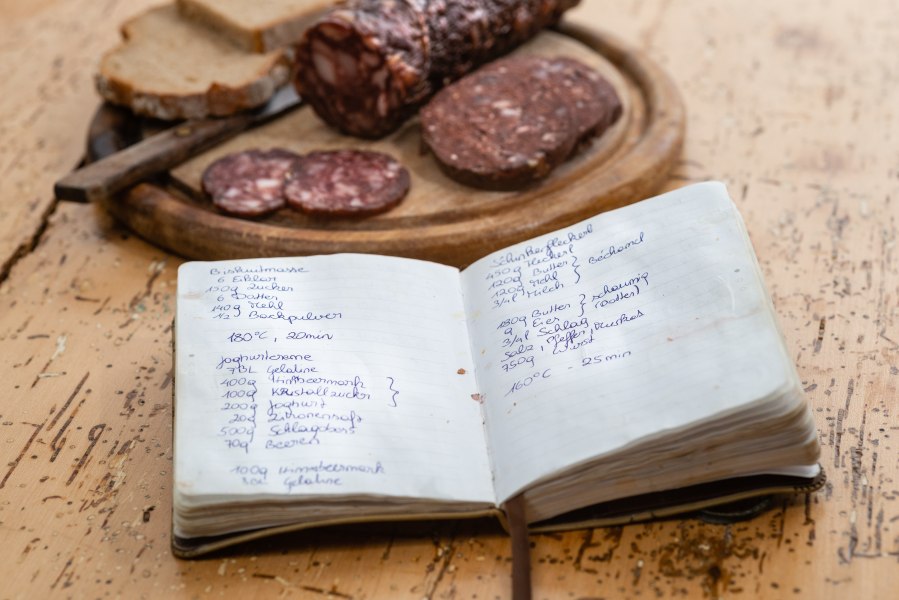 Biskuitmasse
6 Eiklar
150g Zucker
6 Dotter
140g Mehl
1/2 Backpulver
180°C, 20min
Joghurtcreme
7 BL Gelatine
400g Himbeermark
100g Kristallzucker
200g Joghurt
20g Zitronensaft
500g Schlagobers
70g Beeren
100g Himbeermark
Gelatine
Schinkenfleckerl
450g Fleckerl
120g Butter
120g Mehl Béchamel
3/4l Milch
180g Butter schaumig
9 Eier (Dotter)
3/4l Schlag
Salz, Pfeffer, Muskat
750g Wurst
160°C - 25min